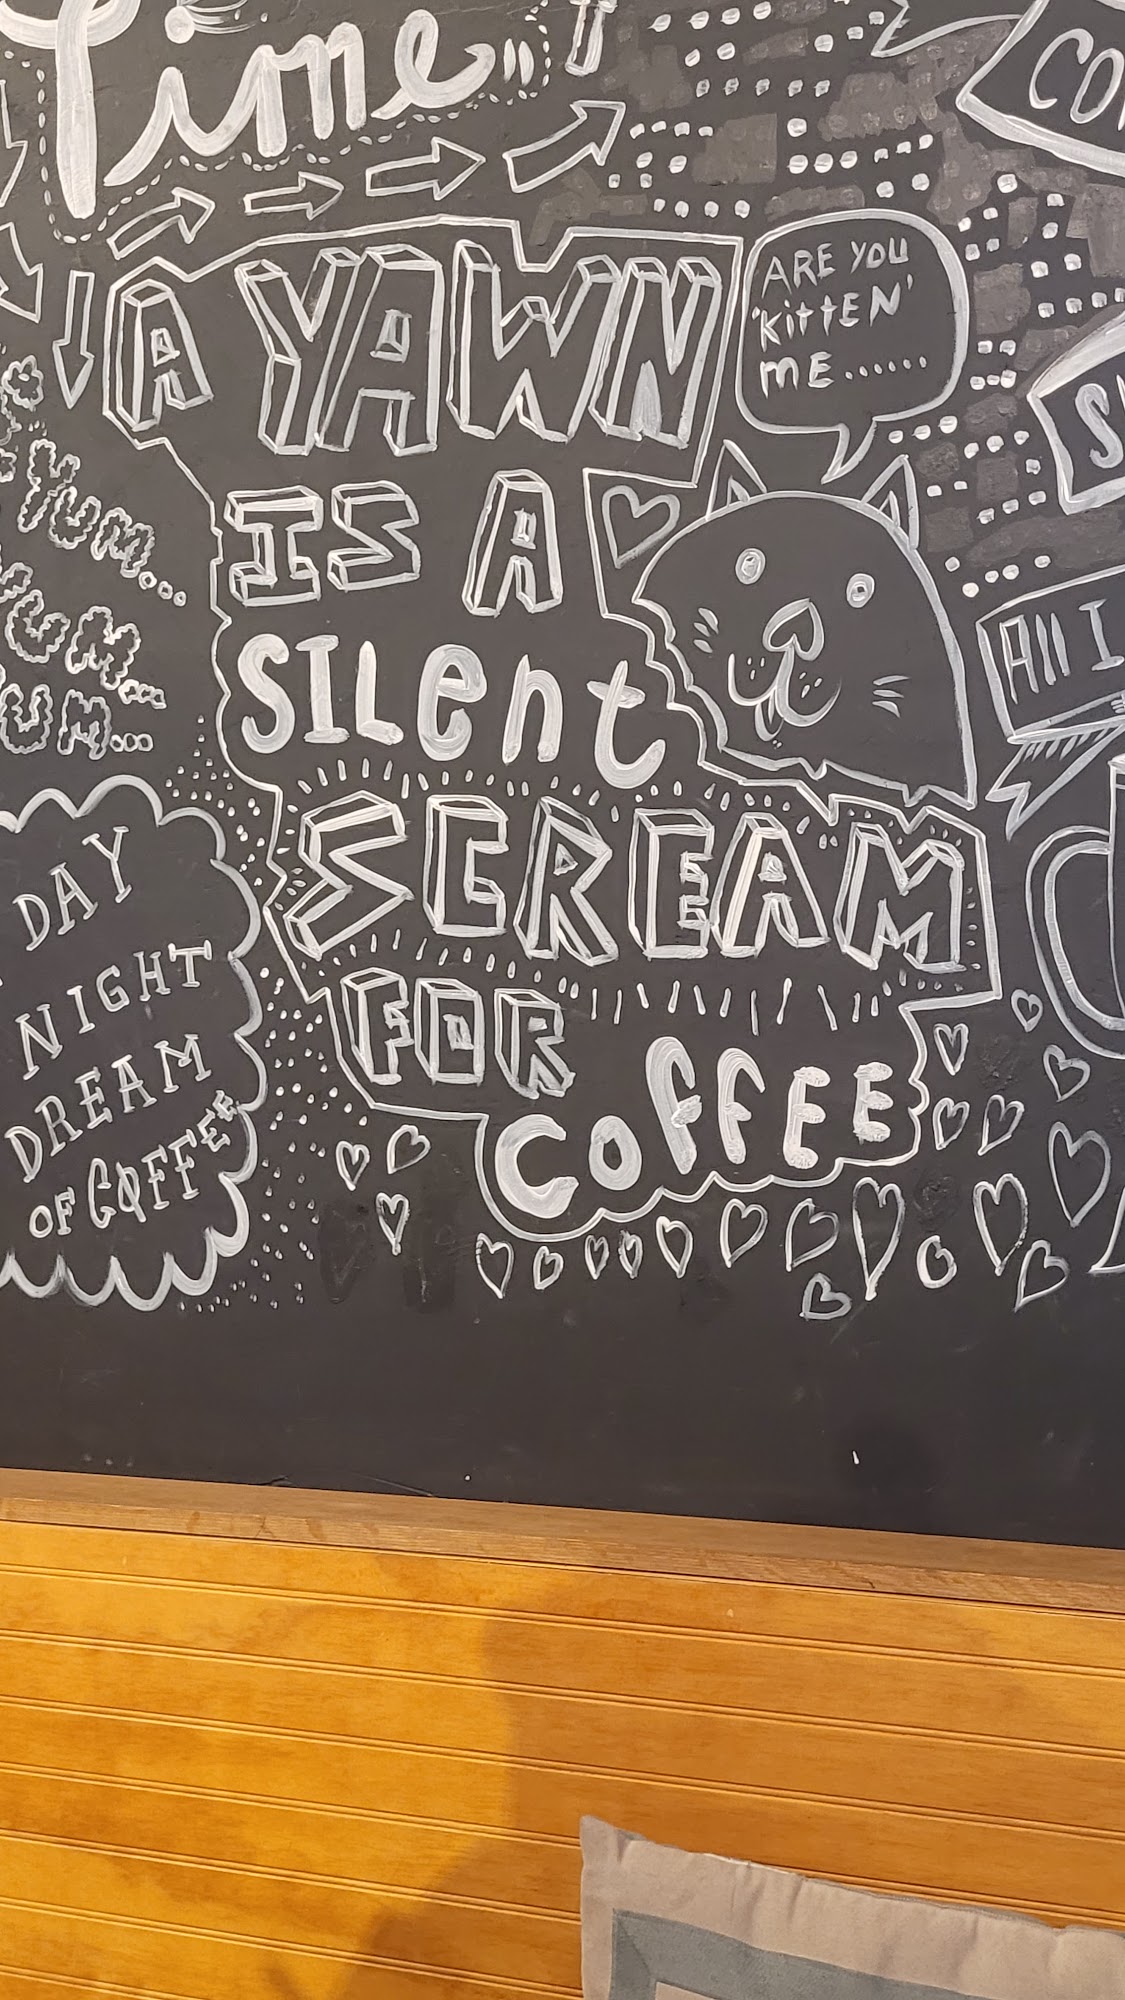 Time"!
CO
A YAWN
ARE YOU
'KittEN'
ME......
IS A
SILent
SCREAM
FOR
COFFEE
YUM...
YUM...
YUM...
All I
DAY
NIGHT
DREAM
OF COFFEE